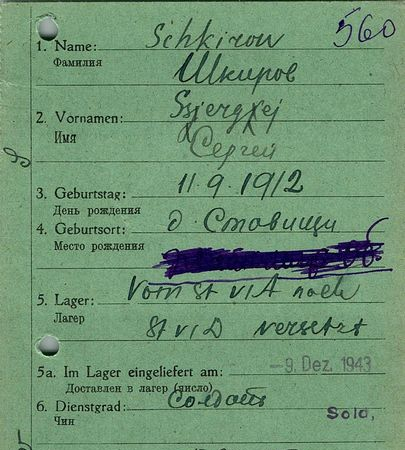 560
1. Name: Schkirow
Фамилия
Шкиров
2. Vornamen: Ssjergej
Имя
Сергей
3. Geburtstag: 11.9.1912
День рождения
4. Geburtsort: д. Ставищи
Место рождения
5. Lager: Vom St VI A nach
Лагер
St VI D versetzt
5a. Im Lager eingeliefert am: -9. Dez. 1943
Доставлен в лагер (число)
6. Dienstgrad: Солдат Sold.
Чин